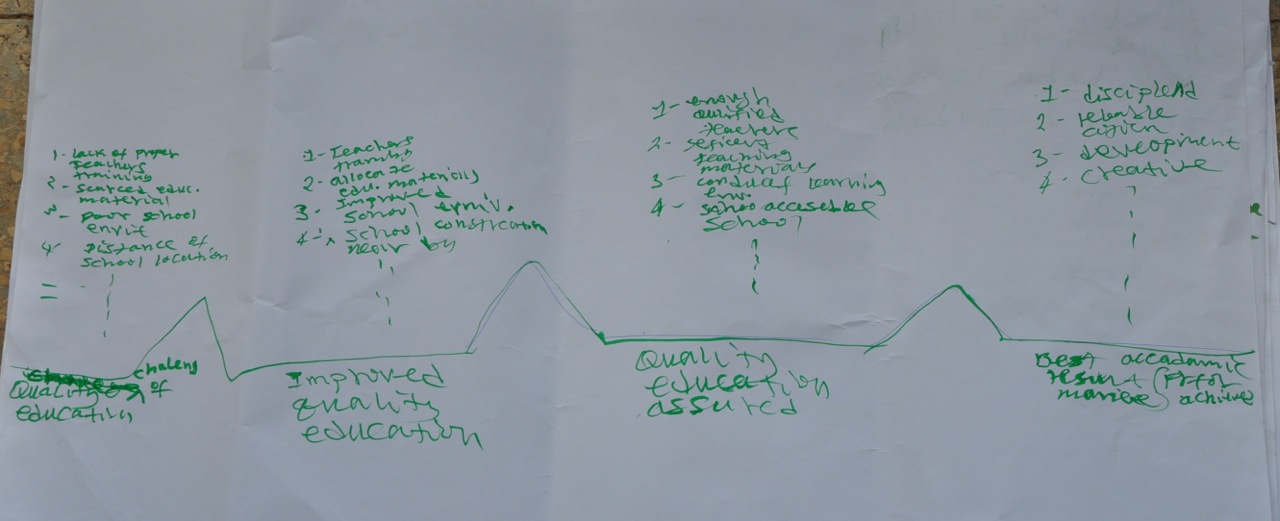 1- lack of proper
teachers
training
2- scarced educ.
material
3- poor school
envit
4- Distance of
school location
=
chaleng
Quality of
education
1- Teachers
2- allocate
edu. materials
3- Improved
School
4- School constrcation
near by
Improved
quality
education
1- enough
qualified
teachers
2-
teaching
materials
3- conducef learning
env.
4- schoo accesible
School
Quality
education
assured
1- disciplend
2-
citizen
3- development
4- creative
Best accadamic
achived